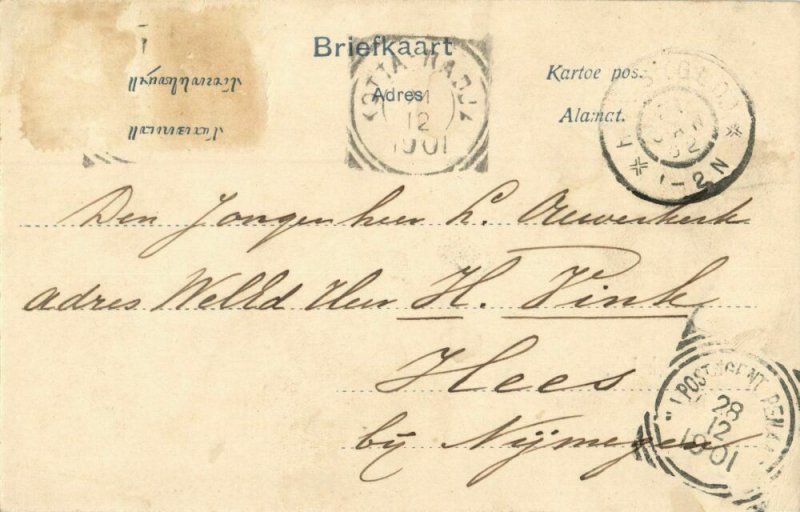 Briefkaart
Adres
Kartoe pos
Alamat.
KOTTA-RADJA
12
1901
1-2N
Den Jongenheer L. Ouwerkerk
adres WelEd Heer H. Vink
Hees
bij Nijmegen
POSTAGENT PENA
28
12
1901